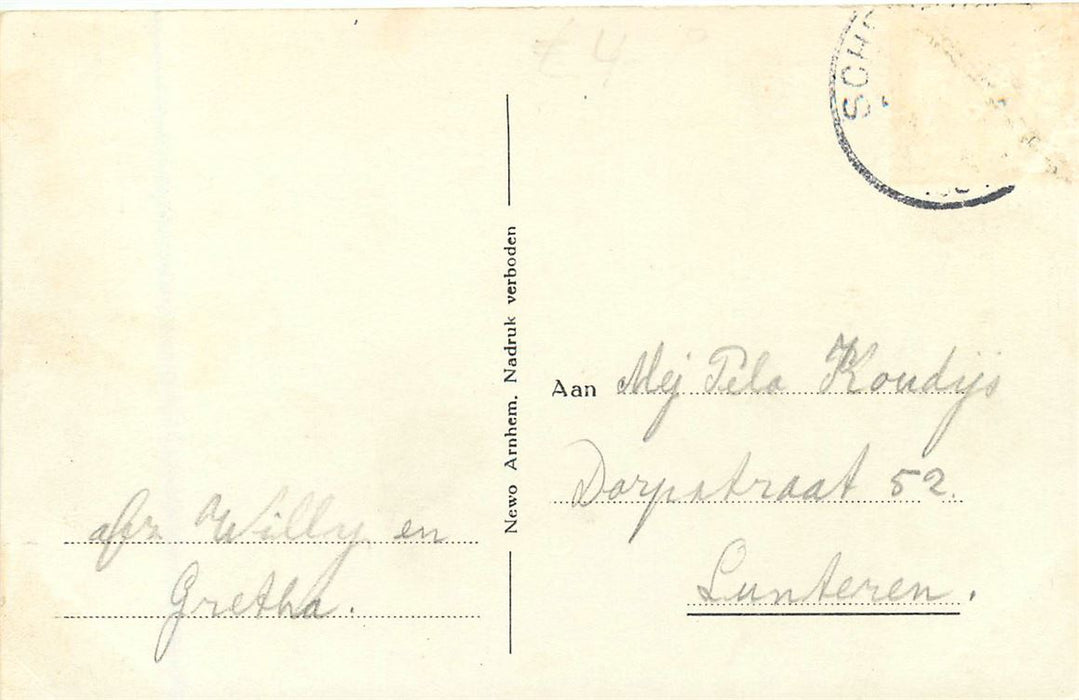 £4
SCH
Newo Arnhem. Nadruk verboden
Aan Mej Pela Koudijs
Dorpstraat 52.
Lunteren.
afz Willy en
Gretha.